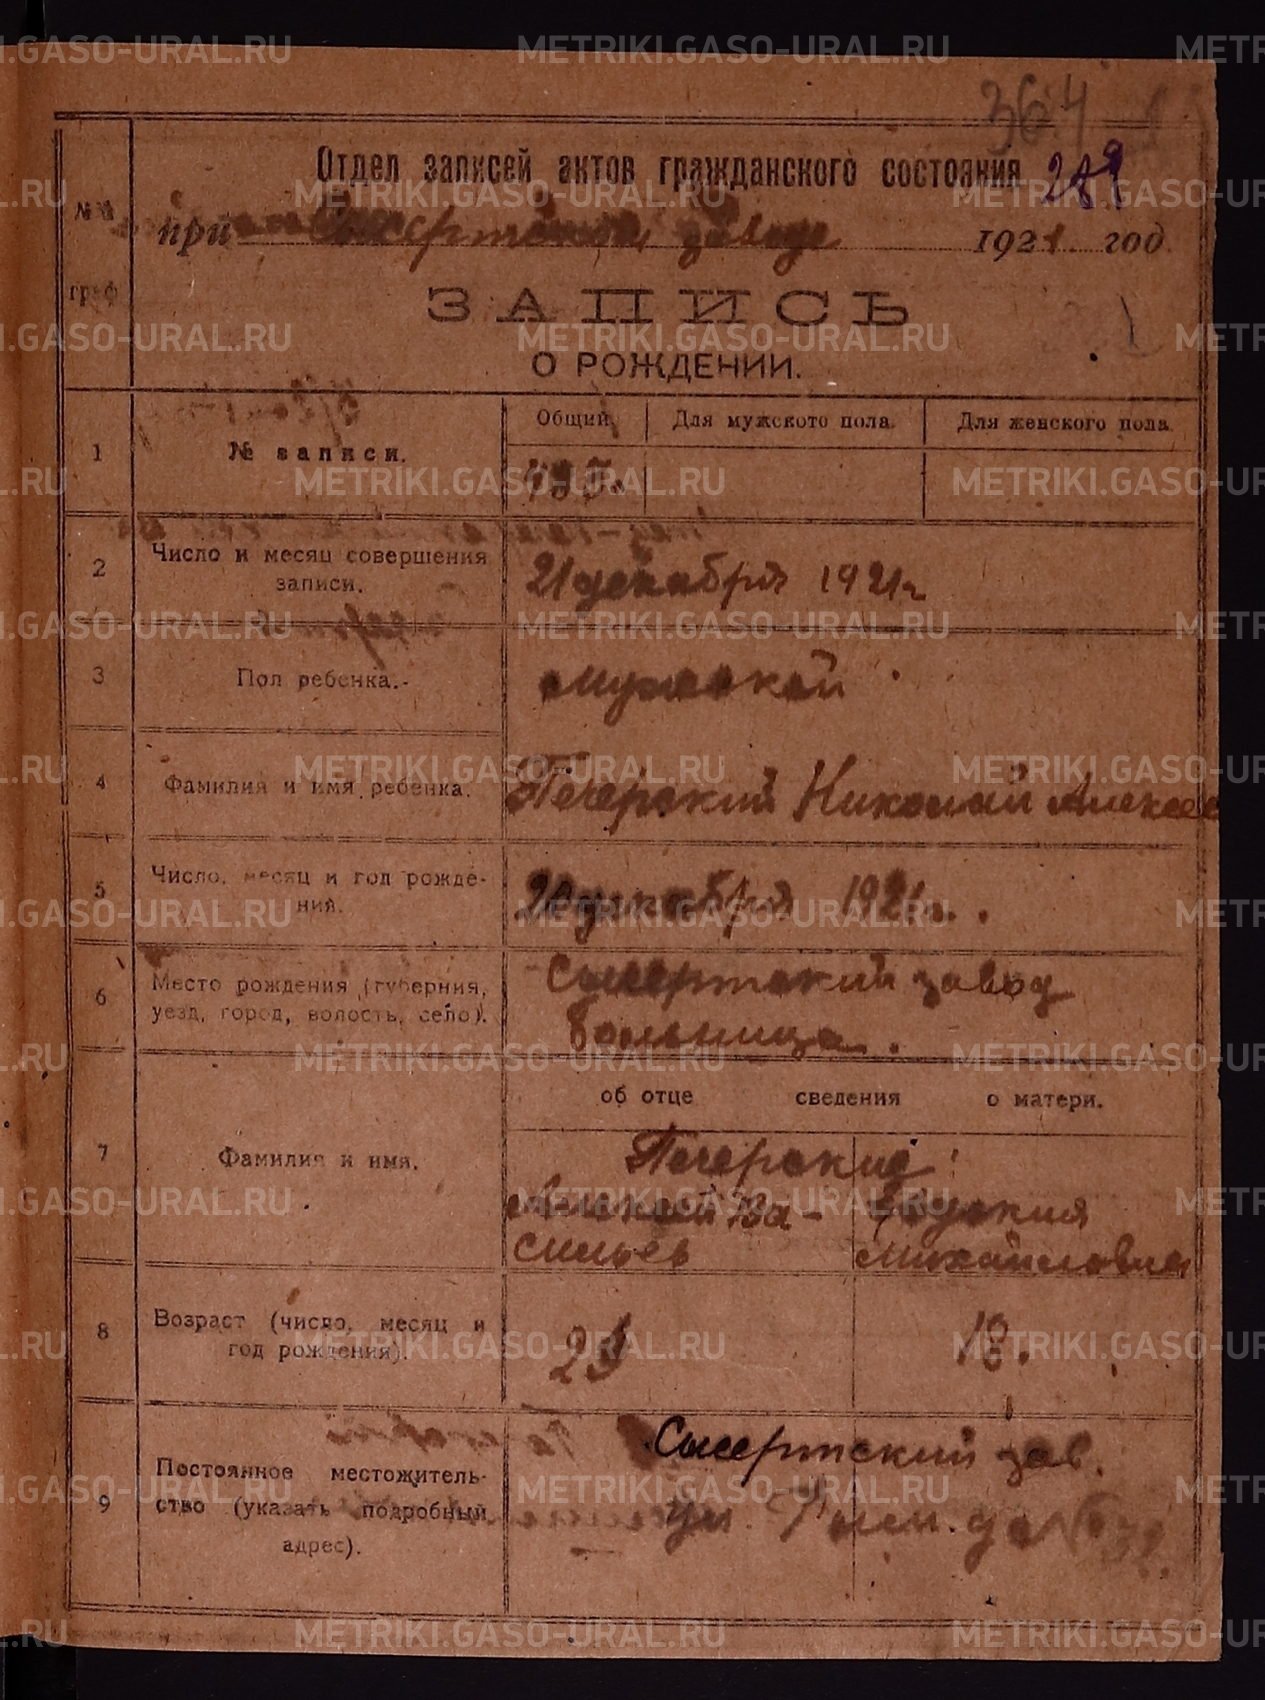 364
Отдел записей актов гражданского состояния 289
№№ при Сысертском заводе 1921 год
граф
ЗАПИСЬ
О РОЖДЕНИИ.
1 № записи. Общий Для мужского пола. Для женского пола.
495.
2 Число и месяц совершения записи. 21 декабря 1921 г.
3 Пол ребенка.- мужской
4 Фамилия и имя ребенка. Печерский Николай Алексеев
5 Число, месяц и год рождения. 20 декабря 1921 г.
6 Место рождения (губерния, уезд, город, волость, село). Сысертский завод больница.
об отце сведения о матери.
7 Фамилия и имя. Печерские
Алексей Ва- 
сильев Михайловна
8 Возраст (число, месяц и год рождения). 18.
9 Постоянное местожительство (указать подробный адрес). Сысертский зав.
ул.
METRIKI.GASO-URAL.RU